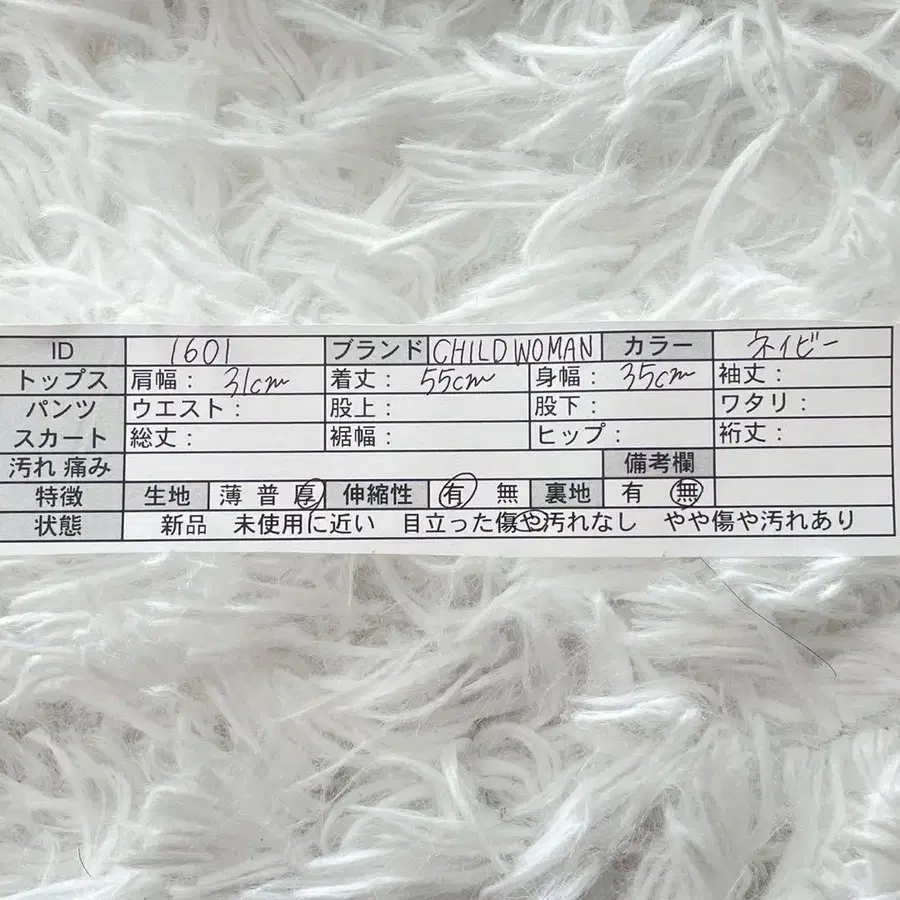 ID 1601 ブランド CHILD WOMAN カラー ネイビー
トップス 肩幅： 31cm 着丈： 55cm 身幅： 35cm 袖丈：
パンツ ウエスト： 股上： 股下： ワタリ：
スカート 総丈： 裾幅： ヒップ： 裄丈：
汚れ 痛み 備考欄
特徴 生地 薄 普 厚 伸縮性 有 無 裏地 有 無
状態 新品 未使用に近い 目立った傷や汚れなし やや傷や汚れあり